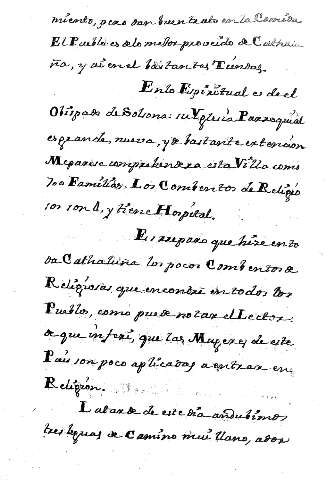 miento, pero dan buen trato en la Comida
El Pueblo es de lo mejor proveido de Cathalu-
ña, y ai en el bastantes Tiendas.
En lo Espiritual es de el
Obispado de Solsona: su Yglecia Parroquial
es grande, nueva, y de bastante extencion
Me parese comprehenderá esta Villa como
700 Familias. Los Combentos de Religio
sos son 4, y tiene Hospital.
Es reparo que hize en to
da Cathaluña los pocos Combentos de
Religiosas que encontré en todos los
Pueblos, como puede notar el Lector:
de que inferi, que las Mugeres de este
Pais son poco aplicadas a entrar en
Religion.
La tarde de este dia andubimos
tres leguas de Camino mui llano, a dor